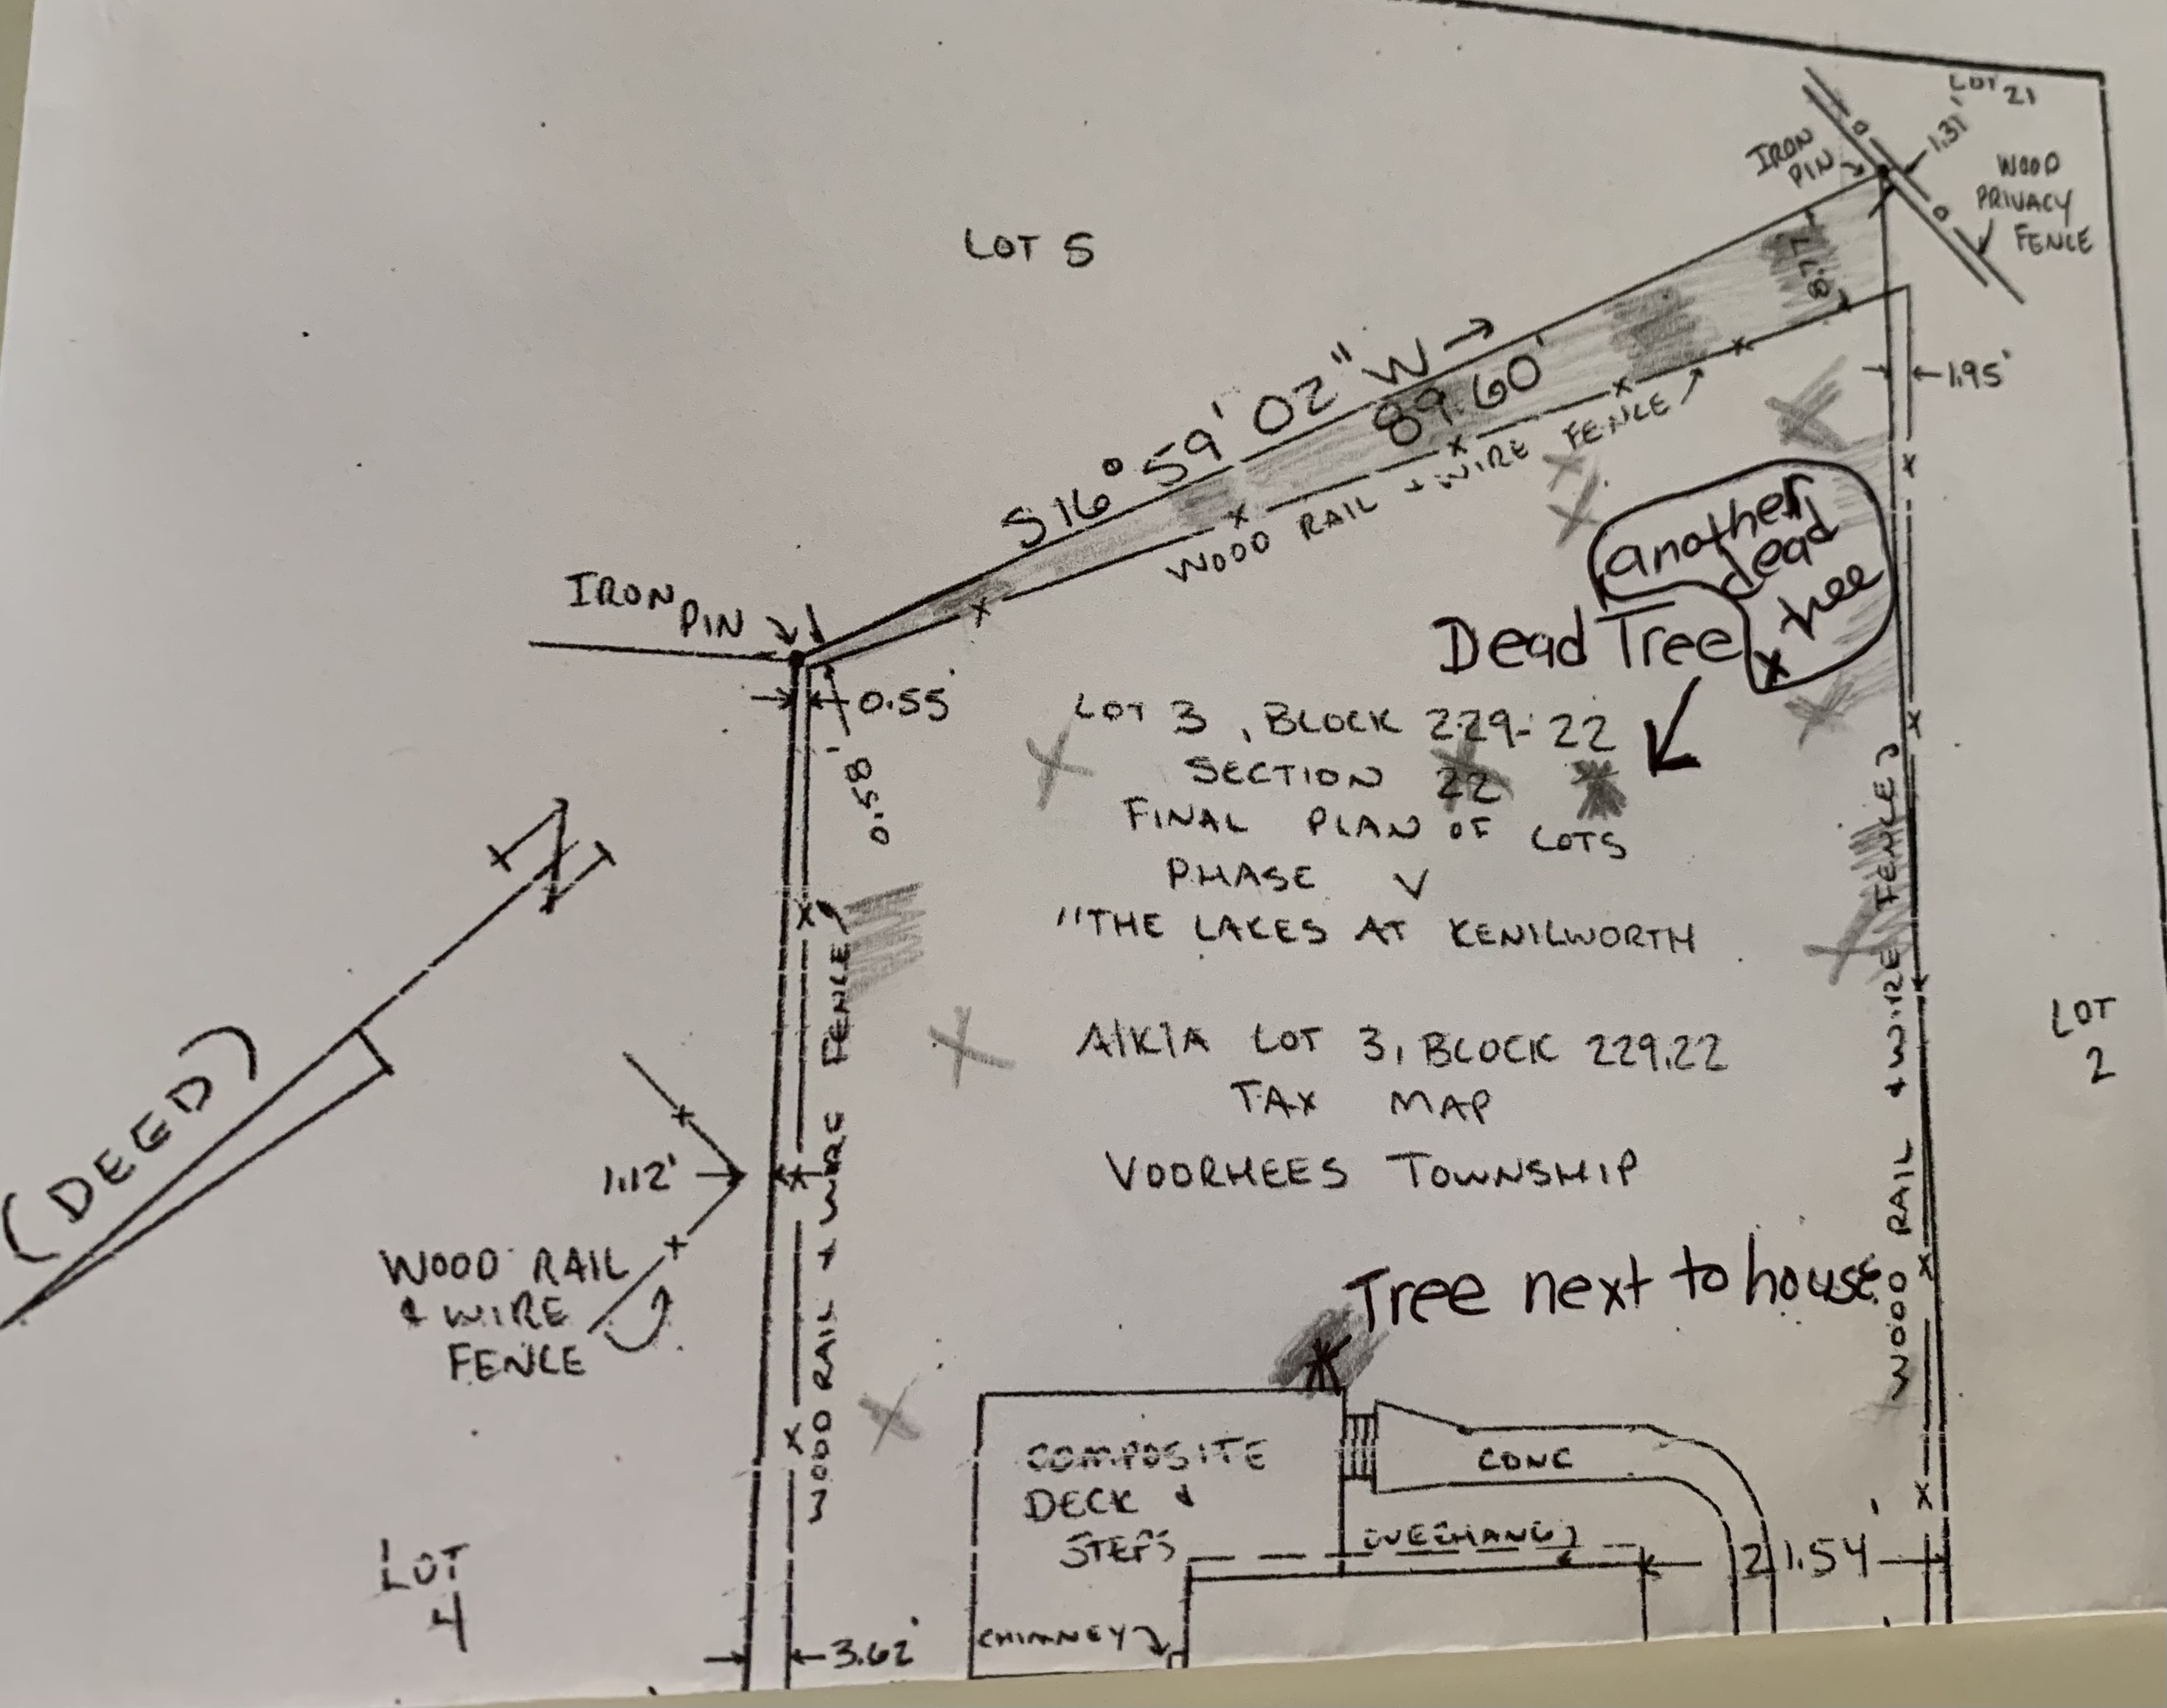 LOT 21
1.31'
IRON
PIN
WOOD
PRIVACY
FENCE
LOT 5
S16° 59' 02" W
89.60'
1.95'
WOOD RAIL + WIRE FENCE
another
dead
tree
Dead Tree
IRON
PIN
0.55'
0.58'
LOT 3, BLOCK 229-22
SECTION 22
FINAL PLAN OF LOTS
PHASE V
"THE LAKES AT KENILWORTH
A/K/A LOT 3, BLOCK 229.22
TAX MAP
VOORHEES TOWNSHIP
N
(DEED)
1.12'
WOOD RAIL
& WIRE
FENCE
WOOD RAIL + WIRE FENCE
WOOD RAIL + WIRE FENCE
LOT
2
Tree next to house
COMPOSITE
DECK &
STEPS
CONC
OVERHANG
21.54'
CHIMNEY
LOT
4
3.62'